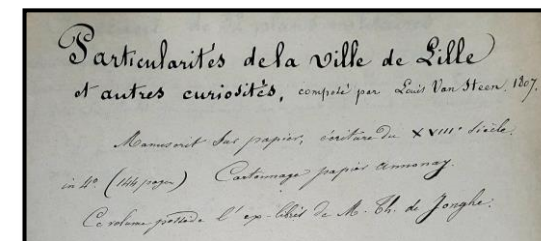 Particularités de la ville de Lille
et autres curiosités, composé par Louis Van Steen, 1807.
Manuscrit sur papier, écriture du XVIIIe siècle.
in 4o (144 pages) Cartonnage papier annonay.
Ce volume possède l'ex-libris de M. Th. de Jonghe.